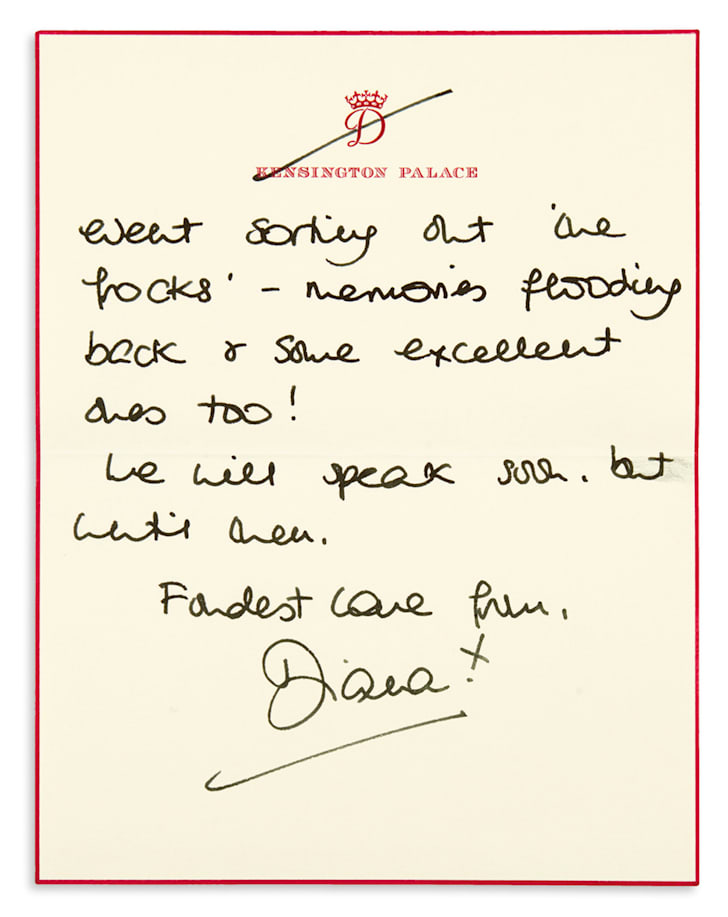 D
KENSINGTON PALACE
event sorting out 'the
frocks' - memories flooding
back & some excellent
ones too!
We will speak soon. but
until then.
Fondest love from,
Diana x